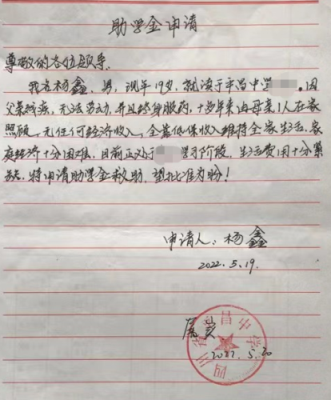 助学金申请
尊敬的各位领导:
我名杨鑫,男,现年19岁,就读于平昌中学 。因
父亲残疾,无法劳动,并且终身服药,十多年来由母亲1人在家
照顾,无任何经济收入,全靠低保收入维持全家生活,家
庭经济十分困难,目前正处于 学习阶段,生活费用十分紧
张。特申请助学金救助,望批准为盼!
申请人:杨鑫
2022.5.19.
属实
2022.5.20
四川省平昌中学